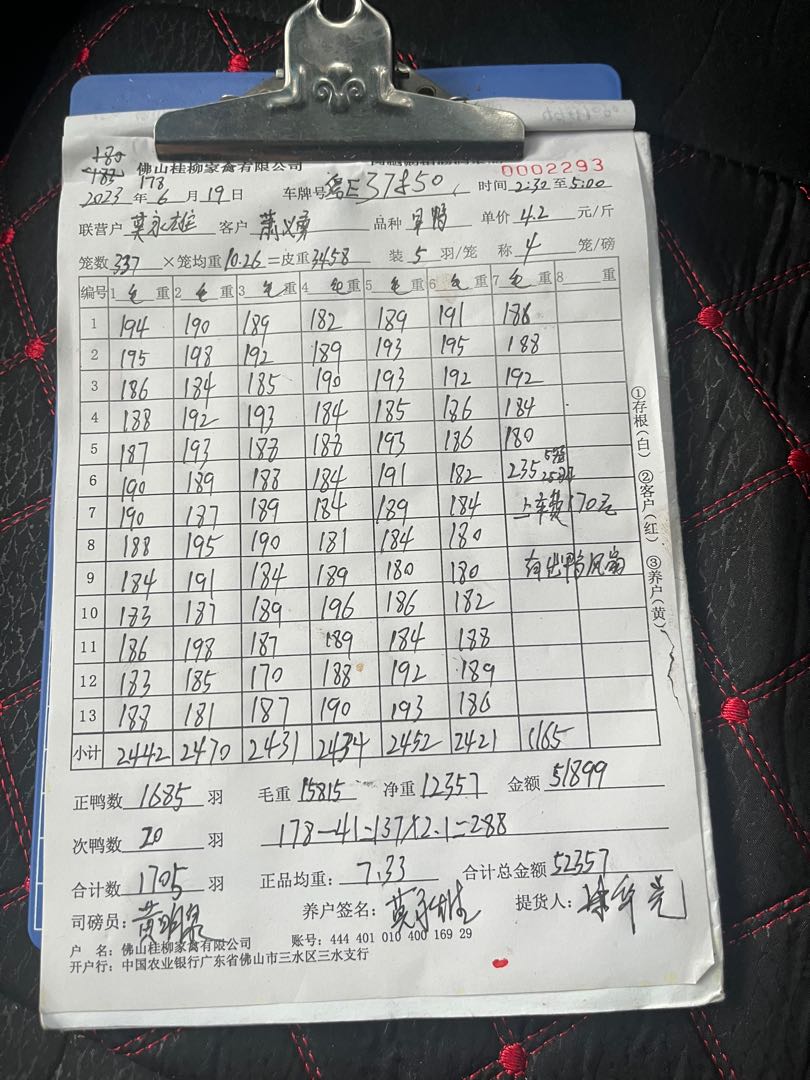 180
183 178
佛山桂柳家禽有限公司 0002293
2023年6月19日 车牌号 粤E37850 时间2:30至5:00
联营户 莫永雄 客户 萧义勇 品种 单价4.2元/斤
笼数337×笼均重10.26=皮重3458 装5羽/笼 称4笼/磅
编号 1毛重 2毛重 3毛重 4毛重 5毛重 6毛重 7毛重 8 重
1 194 190 189 182 189 191 188
2 195 198 192 189 193 195 188
3 186 184 185 190 193 192 192
4 188 192 193 184 185 186 184
5 187 193 188 188 193 186 180
6 190 189 188 184 191 182 235 5笼
7 190 187 189 184 189 184 上车费170元
8 188 195 190 181 184 180
9 184 191 184 189 180 180
10 183 187 189 196 186 182
11 186 198 187 189 184 188
12 183 185 170 188 192 189
13 188 181 187 190 193 186
小计 2442 2470 2431 2434 2452 2421 1165
①存根(白) ②客户(红) ③养户(黄)
正鸭数1685羽 毛重15815 净重12357 金额51899
次鸭数20羽 178-41=137×2.1=288
合计数1705羽 正品均重:7.33 合计总金额52357
司磅员:黄明泉 养户签名:莫永雄 提货人:
户 名:佛山桂柳家禽有限公司 账号:444 401 010 400 169 29
开户行:中国农业银行广东省佛山市三水区三水支行